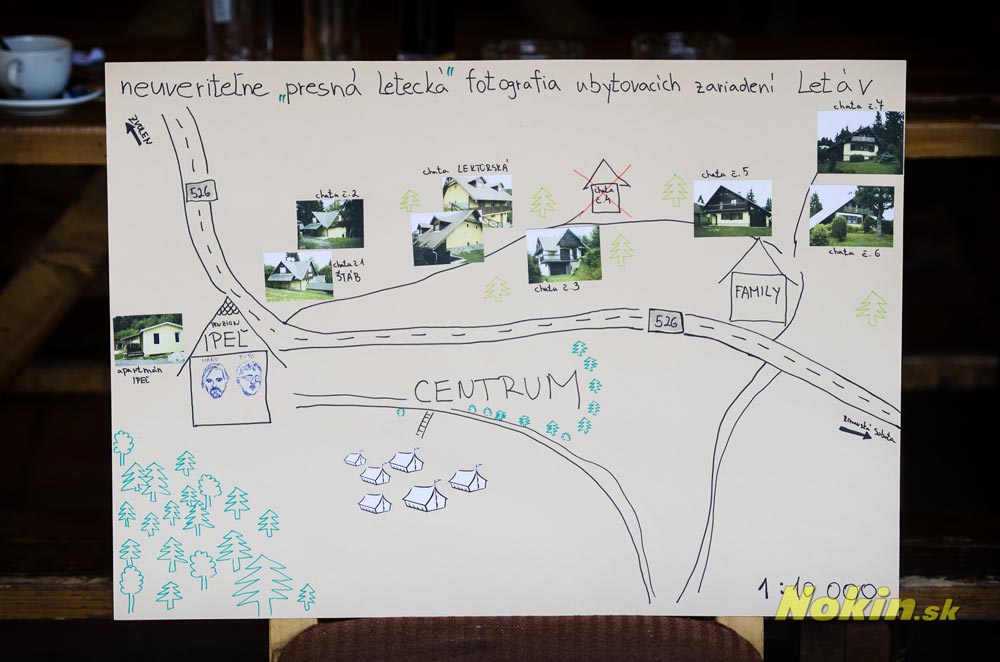 neuveriteľne „presná letecká" fotografia ubytovacích zariadení Letáv
ZVOLEN
526
chata č.2
chata č.1
ŠTÁB
chata LEKTORSKÁ
chata
č.4
chata č.3
chata č.5
chata č.7
chata č.6
FAMILY
526
PENZIÓN
IPEĽ
apartmán
IPEĽ
CENTRUM
Rimavská Sobota
1:10 000
Nokin.sk